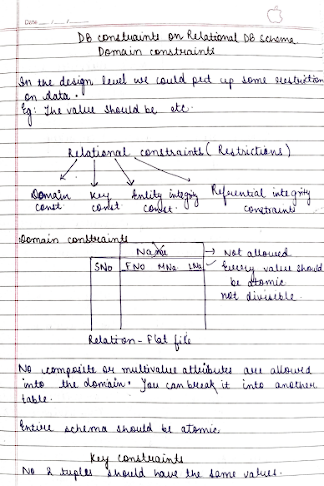 Date __/__/__
DB constraints on Relational DB Schema
Domain constraints
In the design level we could put up some restriction
on data.
Eg: The value should be etc.
Relational constraints (Restrictions)
Domain const
Key const
Entity integrity const.
Referential integrity constraints
Domain constraints
Name → Not allowed
SNo FNO MNo LNo Every value should
be atomic
not divisible.
Relation - Flat file
No composite or multivalue attributes are allowed
into the domain. You can break it into another
table.
Entire schema should be atomic.
Key constraints
No 2 tuples should have the same values.